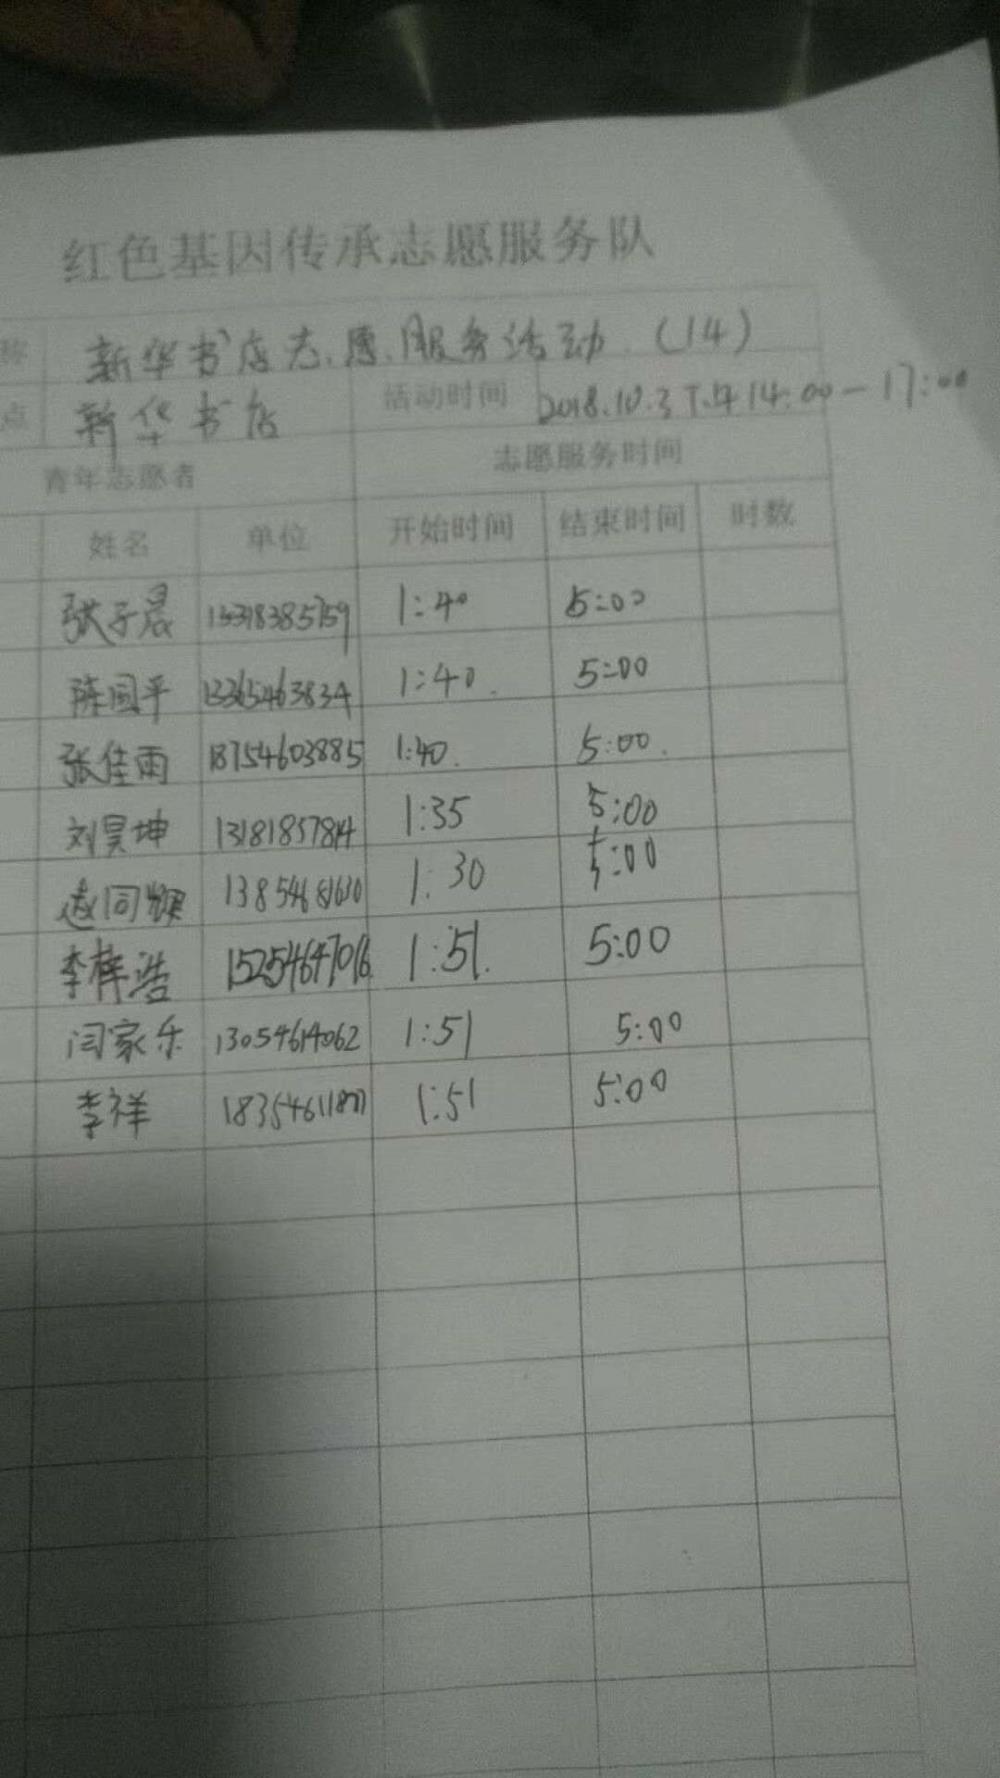 红色基因传承志愿服务队
称 新华书店志愿服务活动 (14)
点 新华书店 活动时间 2018.10.3 下午14:00-17:00
青年志愿者 志愿服务时间
姓名 单位 开始时间 结束时间 时数
张子晨 1:40 5:00
陈国平 13365463834 1:40 5:00
张佳雨 18754603885 1:40 5:00
刘昊坤 13181857814 1:35 5:00
13854681630 1:30 5:00
李梓浩 15254647016 1:51 5:00
闫家乐 13054614062 1:51 5:00
李祥 1:51 5:00